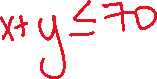 x+y≤70